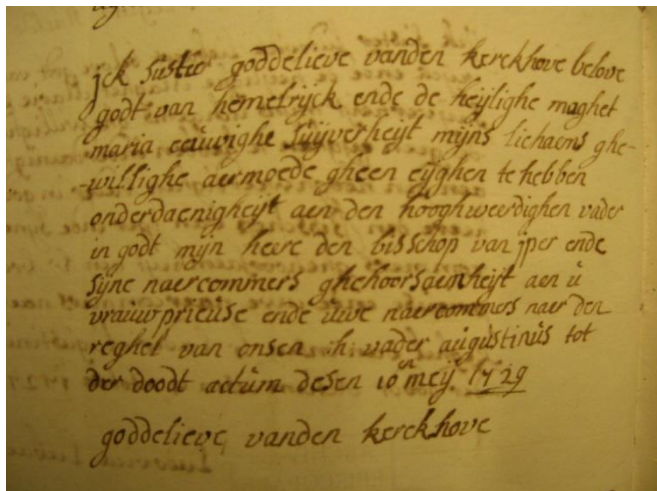 jck suster goddelieve vanden kerckhove belove
godt van hemelrijck ende de heijlighe maghet
maria eeuwighe suijverheyt mijns lichaems ghe-
-willighe aermoede gheen eijghen te hebben
onderdaenigheijt aen den hooghweerdighen vader
in godt mijn heere den bisschop van jper ende
sijne naercommers ghehoorsaemheijt aen ú
vrauw prieuse ende uwe naercommers naer den
reghel van onsen h: vader aúgústinús tot
der doodt actúm desen 10en meij. 1729
goddelieve vanden kerckhove